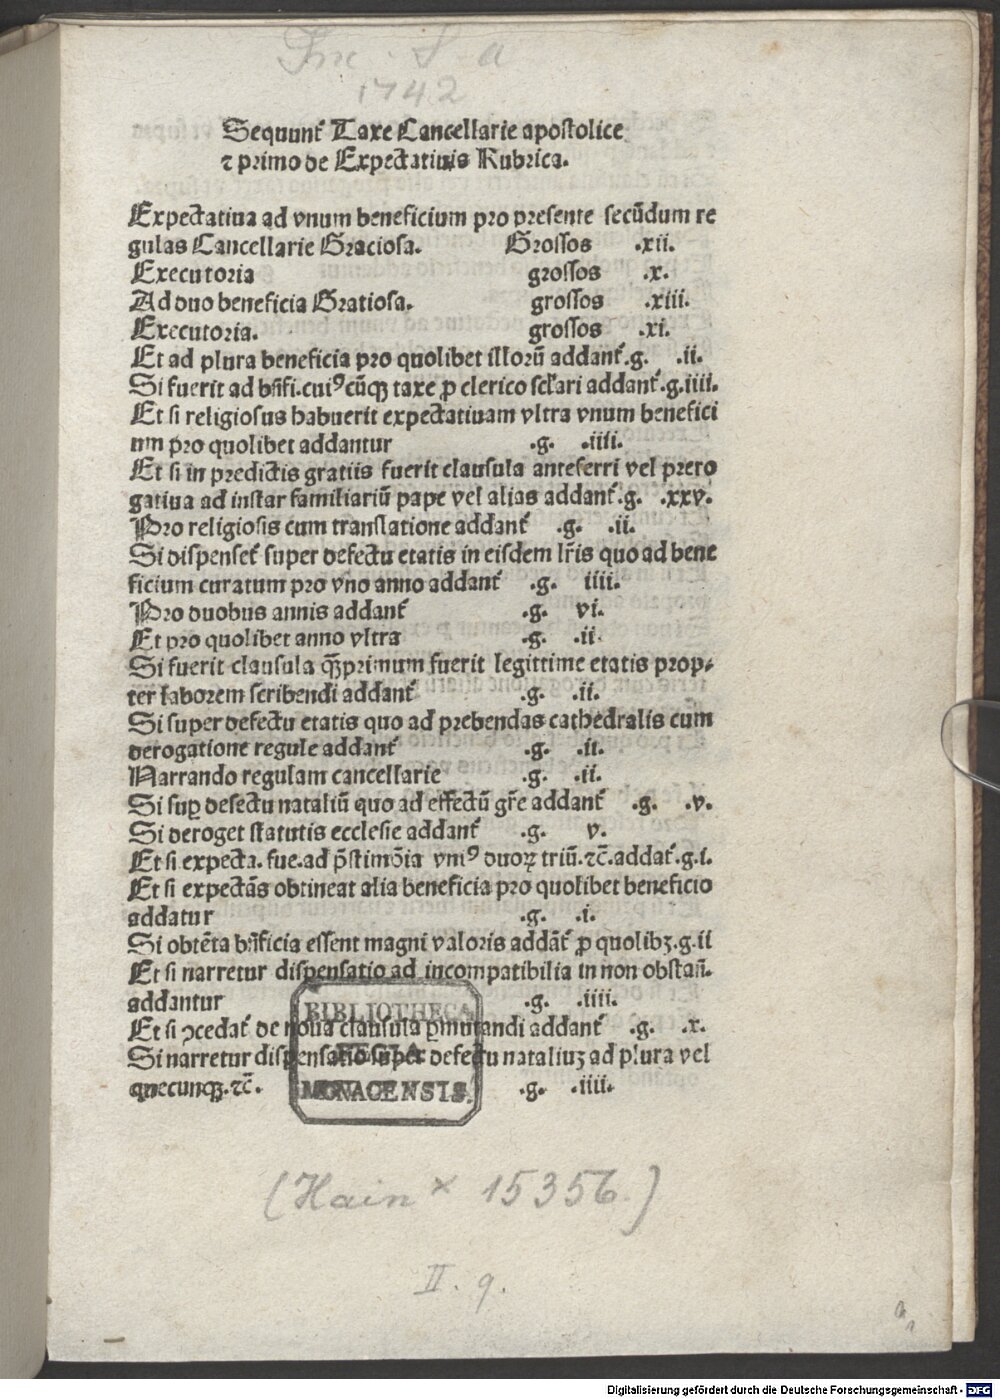 Inc. S. a
1742
Sequunt᷑ Taxe Cancellarie apostolice
⁊ primo de Expectatiuis Rubrica.
Expectatiua ad vnum beneficium pro presente secūdum re
gulas Cancellarie Graciosa. Grossos .xii.
Executoria grossos .x.
Ad duo beneficia Gratiosa. grossos .xiii.
Executoria. grossos .xi.
Et ad plura beneficia pro quolibet illorū addant᷑.g. .ii.
Si fuerit ad bn̄fi.cuiꝰcūqꝫ taxe ꝓ clerico scl̄ari addant᷑.g.iiii.
Et si religiosus habuerit expectatiuam vltra vnum benefici
um pro quolibet addantur .g. .iiii.
Et si in predictis gratiis fuerit clausula anteferri vel prero
gatiua ad instar familiariū pape vel alias addant᷑.g. .xxv.
Pro religiosis cum translatione addant᷑ .g. .ii.
Si dispenset᷑ super defectu etatis in eisdem lr̄is quo ad bene
ficium curatum pro vno anno addant᷑ .g. iiii.
Pro duobus annis addant᷑ .g. vi.
Et pro quolibet anno vltra .g. .ii.
Si fuerit clausula qꝫprimum fuerit legittime etatis prop⸗
ter laborem scribendi addant᷑ .g. .ii.
Si super defectu etatis quo ad prebendas cathedralis cum
derogatione regule addant᷑ .g. .ii.
Narrando regulam cancellarie .g. .ii.
Si suꝑ defectu nataliū quo ad effectū gr̄e addant᷑ .g. .v.
Si deroget statutis ecclesie addant᷑ .g. v.
Et si expecta. fue.ad p̄stimōia vniꝰ duoꝝ triū.⁊c̄.addat᷑.g.i.
Et si expectās obtineat alia beneficia pro quolibet beneficio
addatur .g. .i.
Si obtēta bn̄ficia essent magni valoris addāt᷑ ꝓ quolibꝫ.g.ii
Et si narretur dispensatio ad incompatibilia in non obstan̄.
addantur .g. .iiii.
Et si ꝯcedat᷑ de noua clausula ꝑmutandi addant᷑ .g. .x.
Si narretur dispensatio super defectu nataliuꝫ ad plura vel
quecunqꝫ.⁊c̄. .g. .iiii.
BIBLIOTHECA
REGIA
MONACENSIS.
(Hain × 15356.)
II. 9.
a
1
Digitalisierung gefördert durch die Deutsche Forschungsgemeinschaft - DFG